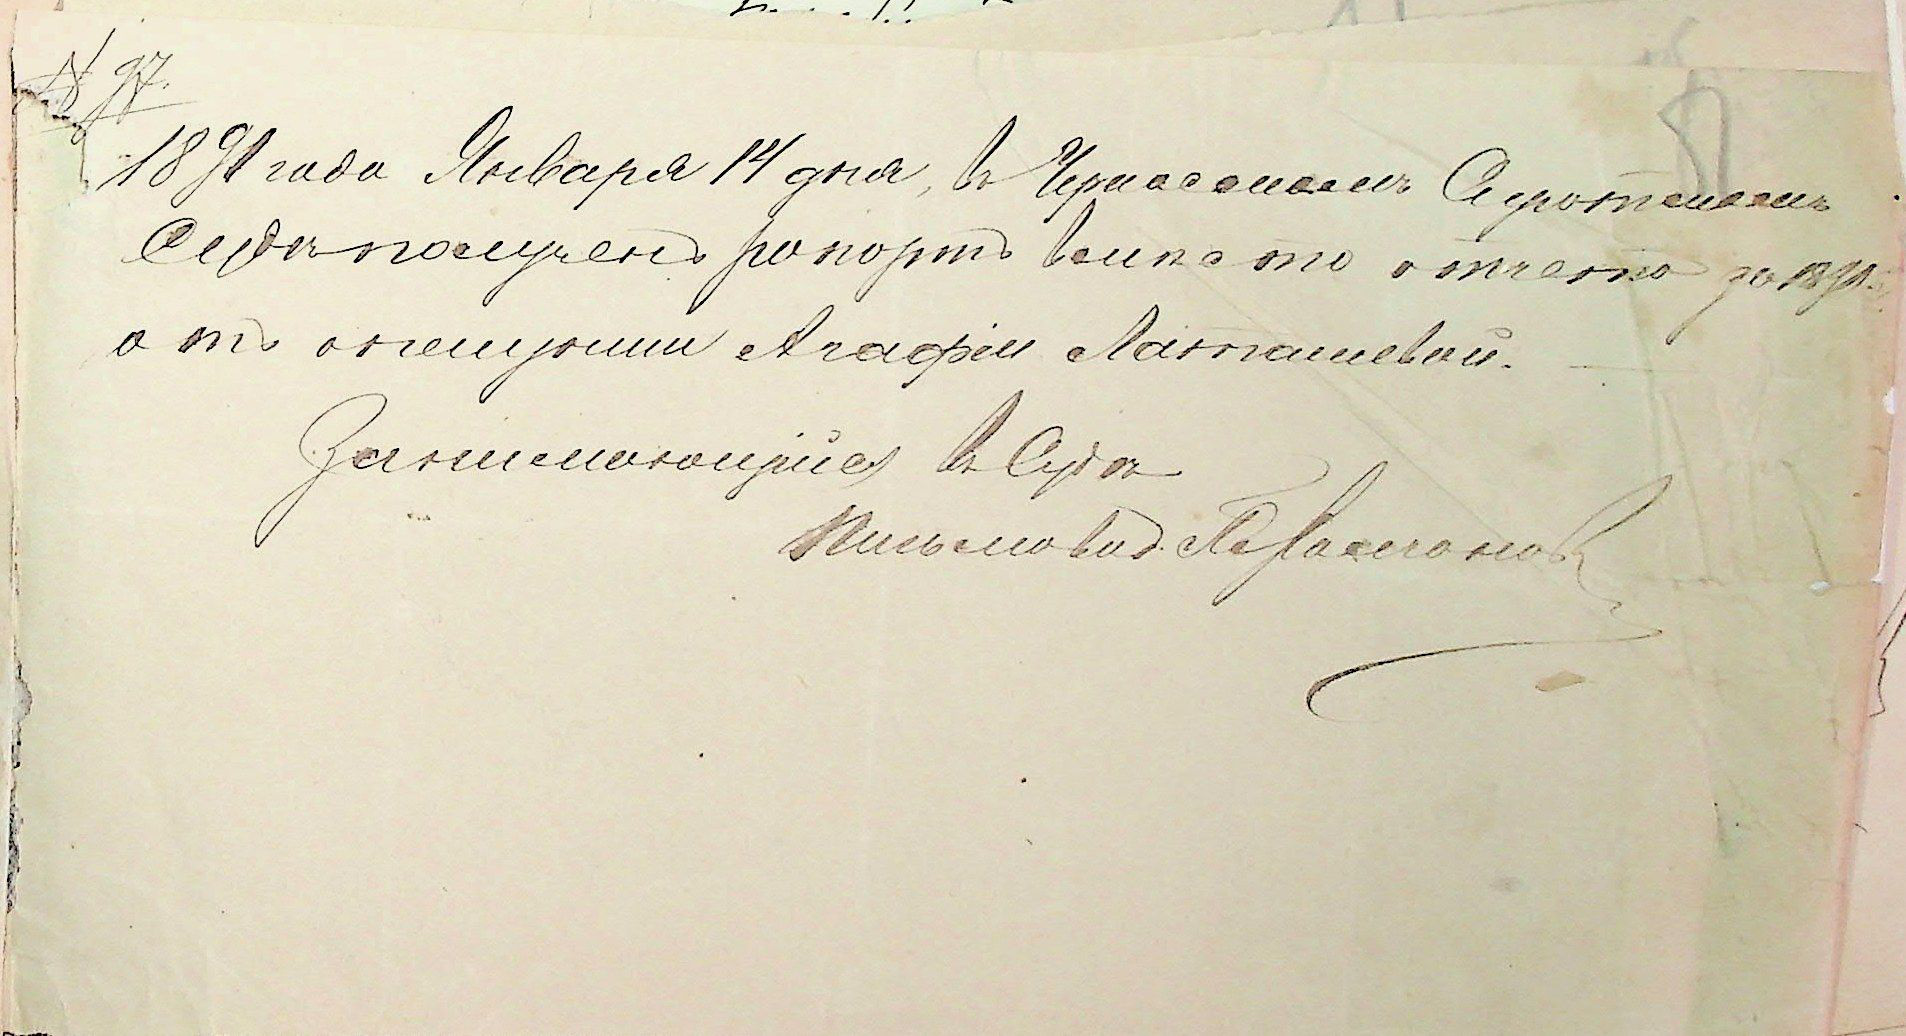 № 97.
1891 года Января 14 дня, въ Черкасскомъ Сиротскомъ
Судѣ получен рапортъ вмѣсто отчета за 1890
отъ опекунши Агафіи Латышевой.
Занимающійся въ Судѣ
Письмовод.